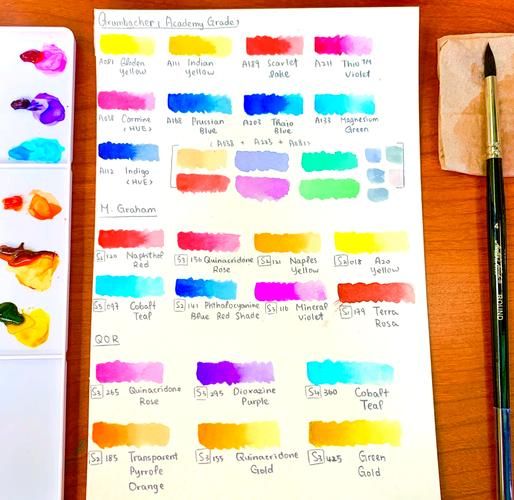 Grumbacher (Academy Grade)
A081 Golden Yellow
A111 Indian Yellow
A189 Scarlet Lake
A211 Thio™ Violet
A038 Carmine (HUE)
A168 Prussian Blue
A203 Thalo Blue
A133 Magnesium Green
A112 Indigo (HUE)
(A038 + A203 + A081)
M. Graham
S2 120 Naphthol Red
S3 156 Quinacridone Rose
S2 121 Naples Yellow
S2 018 Azo Yellow
S5 097 Cobalt Teal
S2 141 Phthalocyanine Blue Red Shade
S3 116 Mineral Violet
S1 179 Terra Rosa
QOR
S3 265 Quinacridone Rose
S5 295 Dioxazine Purple
S4 360 Cobalt Teal
S2 185 Transparent Pyrrole Orange
S3 155 Quinacridone Gold
S3 425 Green Gold
ROUND